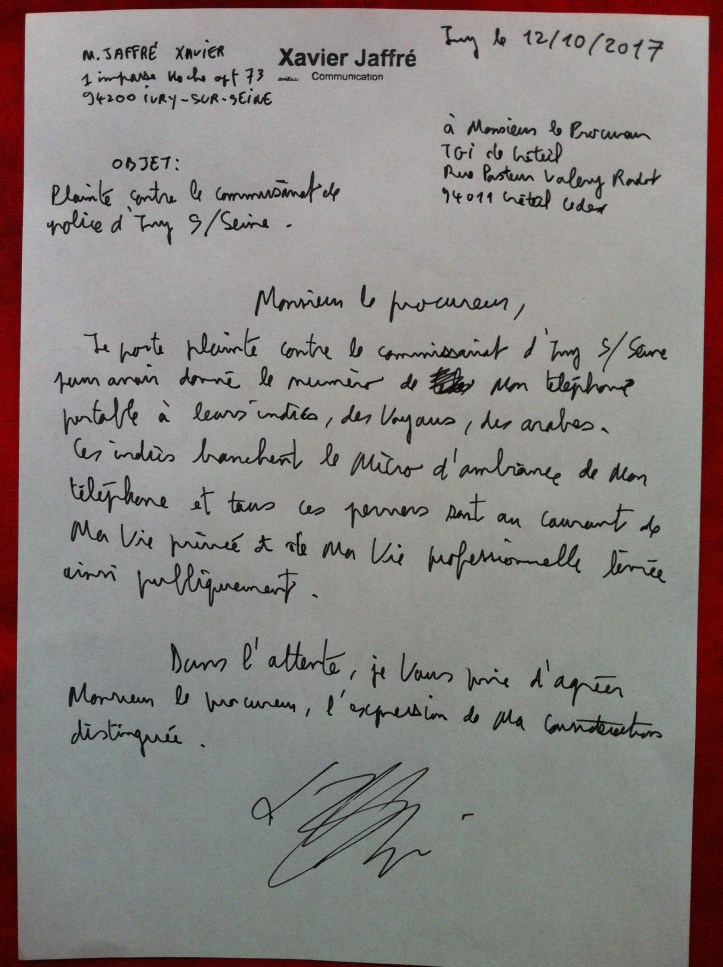 M. JAFFRÉ XAVIER
1 impasse Hoche apt 73
94200 IVRY-SUR-SEINE
Xavier Jaffré
Communication
Ivry le 12/10/2017
à Monsieur le Procureur
TGI de Créteil
Rue Pasteur Valery Radot
94011 Créteil Cedex
OBJET:
Plainte contre le commissariat de
police d'Ivry S/Seine.
Monsieur le procureur,
Je porte plainte contre le commissariat d'Ivry S/Seine
pour avoir donné le numéro de mon téléphone
portable à leurs indics, des voyous, des arabes.
Ces indics branchent le micro d'ambiance de mon
téléphone et tous ces pervers sont au courant de
ma vie privée et de ma vie professionnelle livrée
ainsi publiquement.
Dans l'attente, je vous prie d'agréer
Monsieur le procureur, l'expression de ma considérations
distinguée.